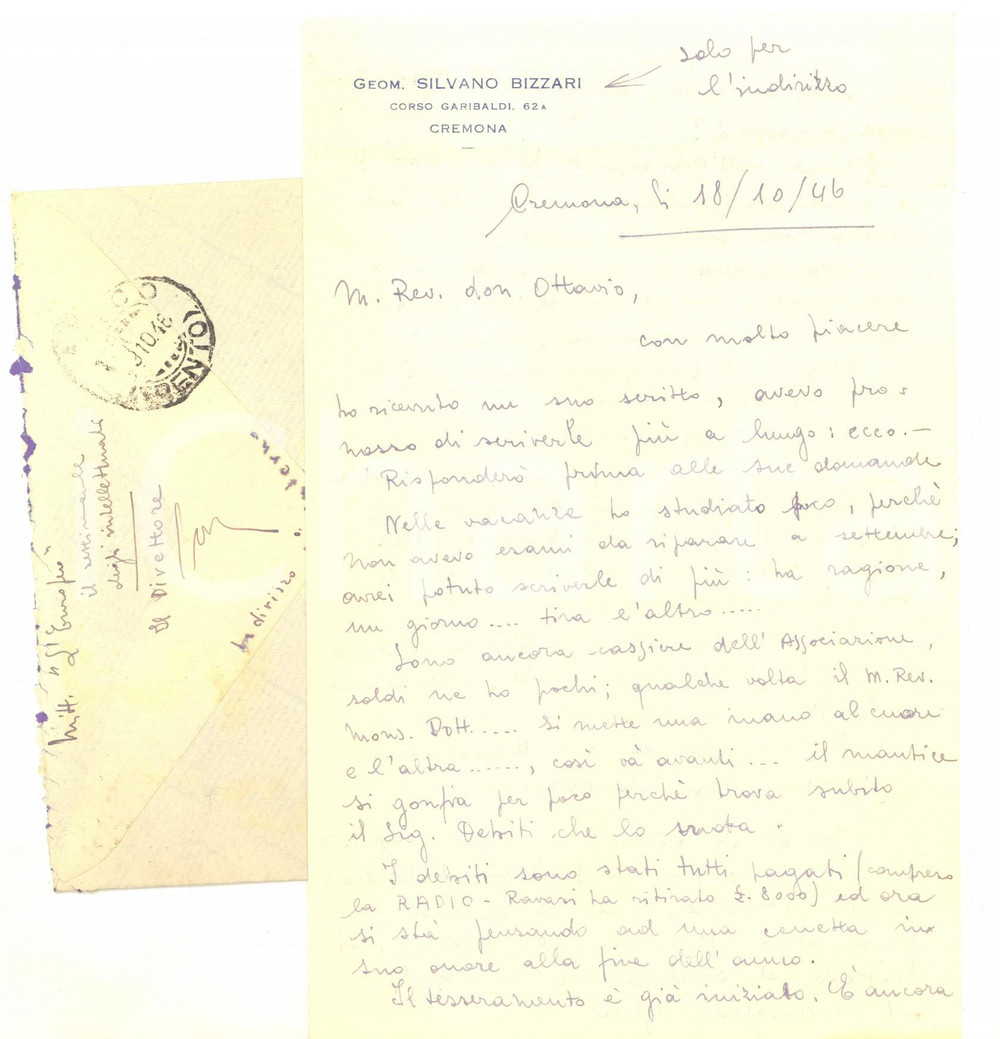 solo per
l'indirizzo
GEOM. SILVANO BIZZARI
CORSO GARIBALDI, 62A
CREMONA
Cremona, lì 18/10/46
M. Rev. don Ottavio,
con molto piacere
ho ricevuto un suo scritto, avevo pro=
messo di scriverle più a lungo: ecco.—
Risponderò prima alle sue domande
Nelle vacanze ho studiato poco, perchè
non avevo esami da riparare a settembre;
avrei potuto scriverle di più: ha ragione,
un giorno.... tira l'altro.....
Sono ancora cassiere dell'Associazione,
soldi ne ho pochi; qualche volta il M. Rev.
Mons. Dott..... si mette una mano al cuore
e l'altra......, così và avanti... il mantice
si gonfia per poco perchè trova subito
il Sig. Debiti che lo vuota.
I debiti sono stati tutti pagati (compreso
la RADIO - Ravasi ha ritirato £. 8000) ed ora
si stà pensando ad una cenetta in
suo onore alla fine dell'anno.
Il tesseramento è già iniziato. È ancora
10.46
Mitt. "L'Europeo"
il settimanale
degli intellettuali
Il Direttore
Indirizzo